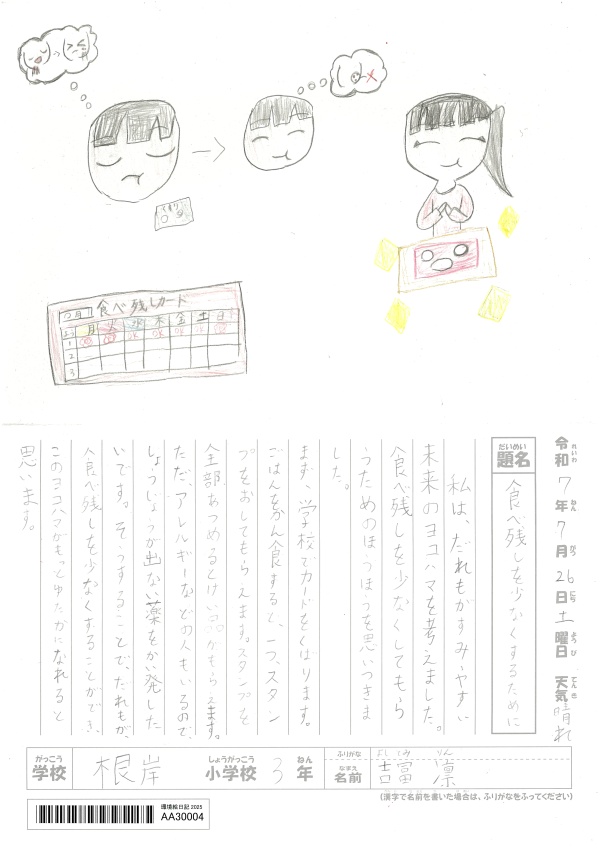 くすり
7月
食べ残しカード
月 火 水 木 金 土 日
1
2
3
OK OK OK OK
令和7年7月26日土曜日 天気晴れ
れいわ ねん がつ にち ようび てんき
題名
だいめい
食べ残しを少なくするために
私は、だれもがすみやすい
未来のヨコハマを考えました。
食べ残しを少なくしてもら
うためのほうほうを思いつきま
した。
まず、学校でカードをくばります。
ごはんをかん食すると、一つ、スタン
プをおしてもらえます。スタンプを
全部あつめるとけい品がもらえます。
ただ、アレルギーなどの人もいるので、
しょうじょうが出ない薬をかい発した
いです。そうすることで、だれもが、
食べ残しを少なくすることができ、
このヨコハマがもっとゆたかになれると
思います。
がっこう しょうがっこう ねん ふりがな よしとみ りん
学校 根岸 小学校 3年 名前 吉冨 凛
なまえ
(漢字で名前を書いた場合は、ふりがなをふってください)
環境絵日記 2025
AA30004